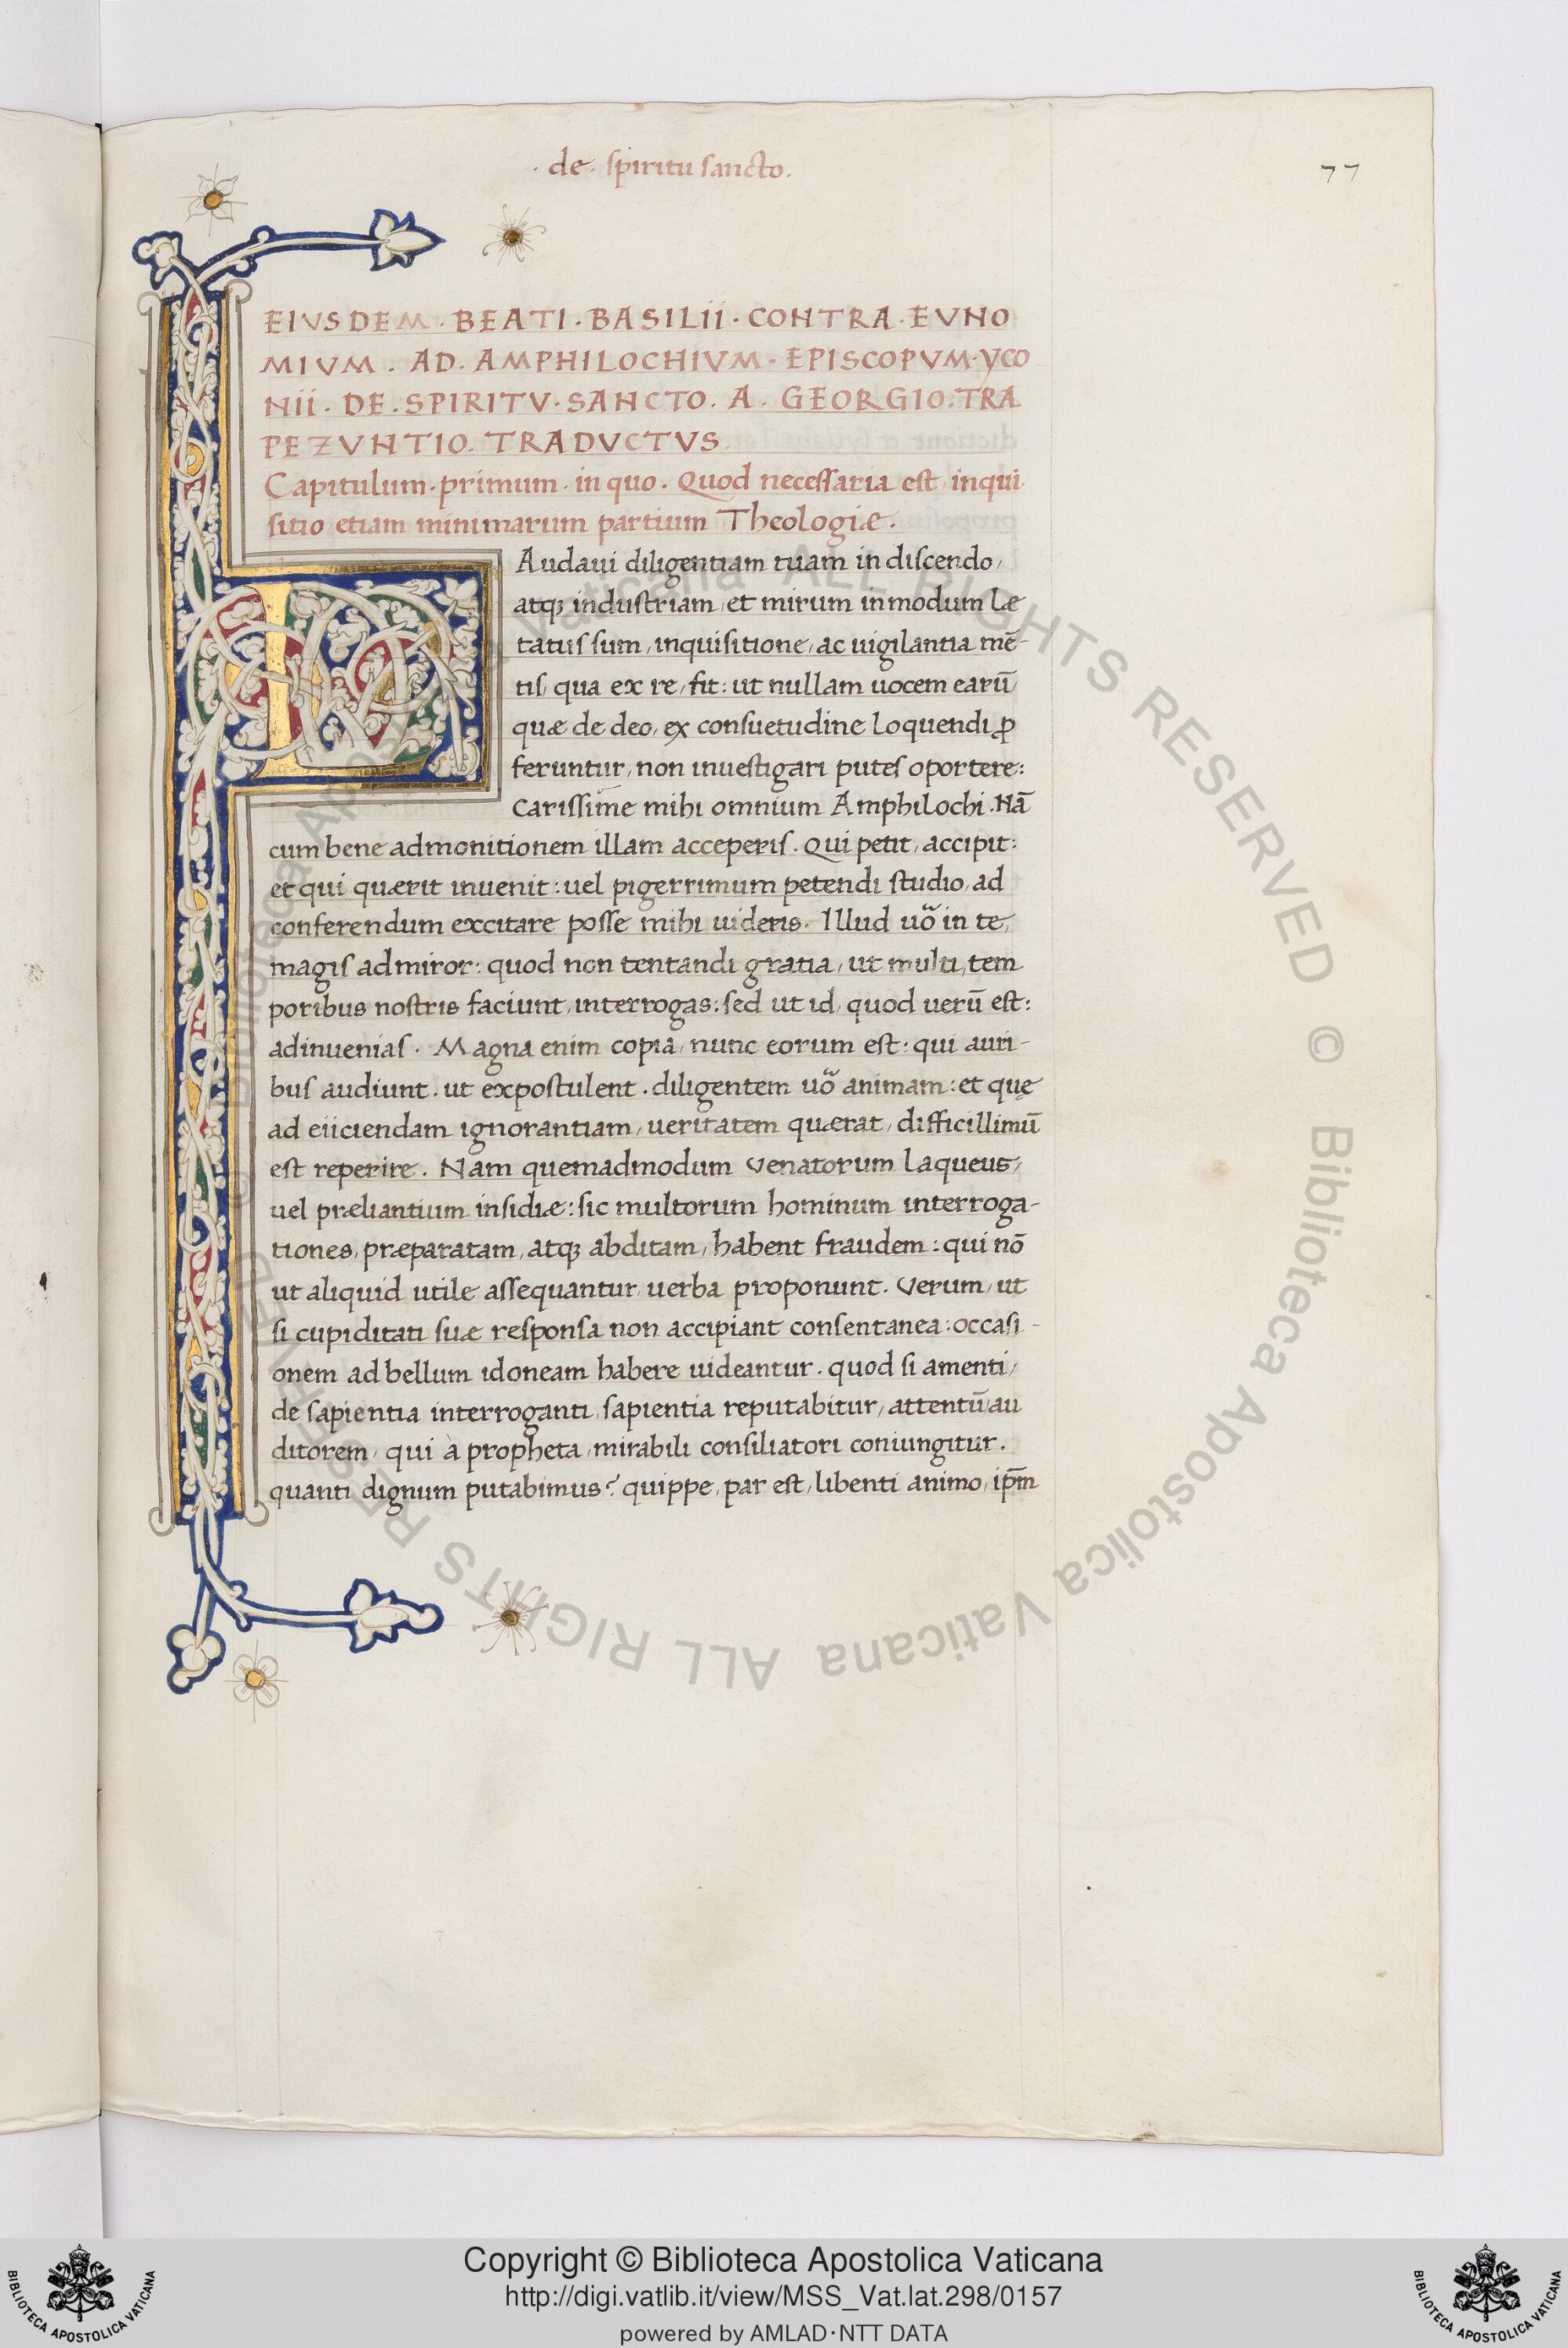 · de · spiritu sancto.
77
EIVSDEM · BEATI · BASILII · CONTRA · EVNO
MIVM · AD · AMPHILOCHIVM · EPISCOPVM · YCO
NII · DE · SPIRITV · SANCTO · A · GEORGIO · TRA
PEZVNTIO · TRADVCTVS
Capitulum · primum · in quo · Quod necessaria est inqui
sitio etiam minimarum partium Theologiæ.
LAudaui diligentiam tuam in discendo,
atqꝫ industriam, et mirum in modum læ
tatus sum, inquisitione, ac uigilantia mē-
tis, qua ex re, fit: ut nullam uocem earū,
quæ de deo, ex consuetudine loquendi ꝓ
feruntur, non inuestigari putes oportere:
Carissime mihi omnium Amphilochi. Nā
cum bene admonitionem illam acceperis. Qui petit, accipit:
et qui quærit inuenit: uel pigerrimum petendi studio, ad
conferendum excitare posse mihi uideris. Illud uȍ in te,
magis admiror: quod non tentandi gratia, ut multi, tem
poribus nostris faciunt, interrogas: sed ut id, quod uerū est:
adinuenias. Magna enim copia, nunc eorum est: qui auri-
bus audiunt. ut expostulent. diligentem uȍ animam: et quę
ad eiiciendam ignorantiam, ueritatem quærat, difficillimū
est reperire. Nam quemadmodum Venatorum laqueus,
uel præliantium insidiæ: sic multorum hominum interroga-
tiones, præparatam, atqꝫ abditam, habent fraudem: qui nō
ut aliquid utile assequantur, uerba proponunt. Verum, ut
si cupiditati suæ responsa non accipiant consentanea: occasi-
onem ad bellum idoneam habere uideantur. quod si amenti,
de sapientia interroganti, sapientia reputabitur, attentū, au
ditorem, qui à propheta, mirabili consiliatori coniungitur.
quanti dignum putabimus? quippe, par est, libenti animo, ip̄m
© Biblioteca Apostolica Vaticana ALL RIGHTS RESERVED
Copyright © Biblioteca Apostolica Vaticana
http://digi.vatlib.it/view/MSS_Vat.lat.298/0157
powered by AMLAD·NTT DATA
BIBLIOTECA APOSTOLICA VATICANA
BIBLIOTECA APOSTOLICA VATICANA